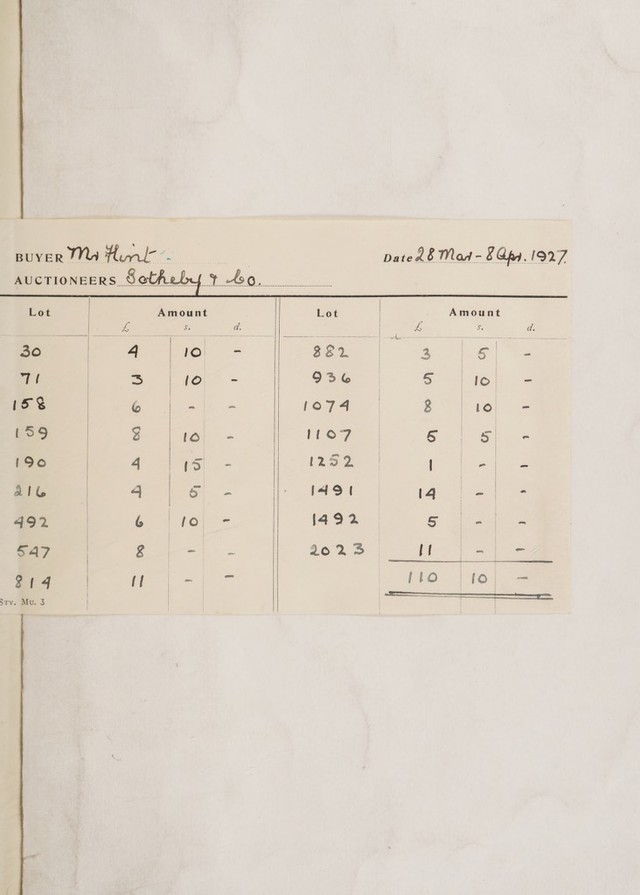 BUYER Mr Flint Date 28 Mar - 8 Apr. 1927.
AUCTIONEERS Sotheby & Co.
Lot Amount Lot Amount
£ s. d. £ s. d.
30 4 10 - 882 3 5 -
71 3 10 - 936 5 10 -
158 6 - - 1074 8 10 -
159 8 10 - 1107 5 5 -
190 4 15 - 1252 1 - -
216 4 5 - 1491 14 - -
492 6 10 - 1492 5 - -
547 8 - - 2023 11 - -
814 11 - - 110 10 -
STY. MU. 3